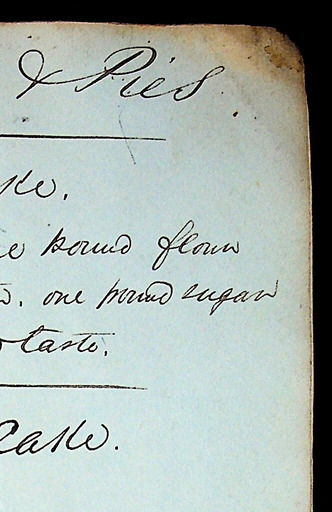 & Pies.
ke.
e pound flour
one pound sugar
taste.
Cake.